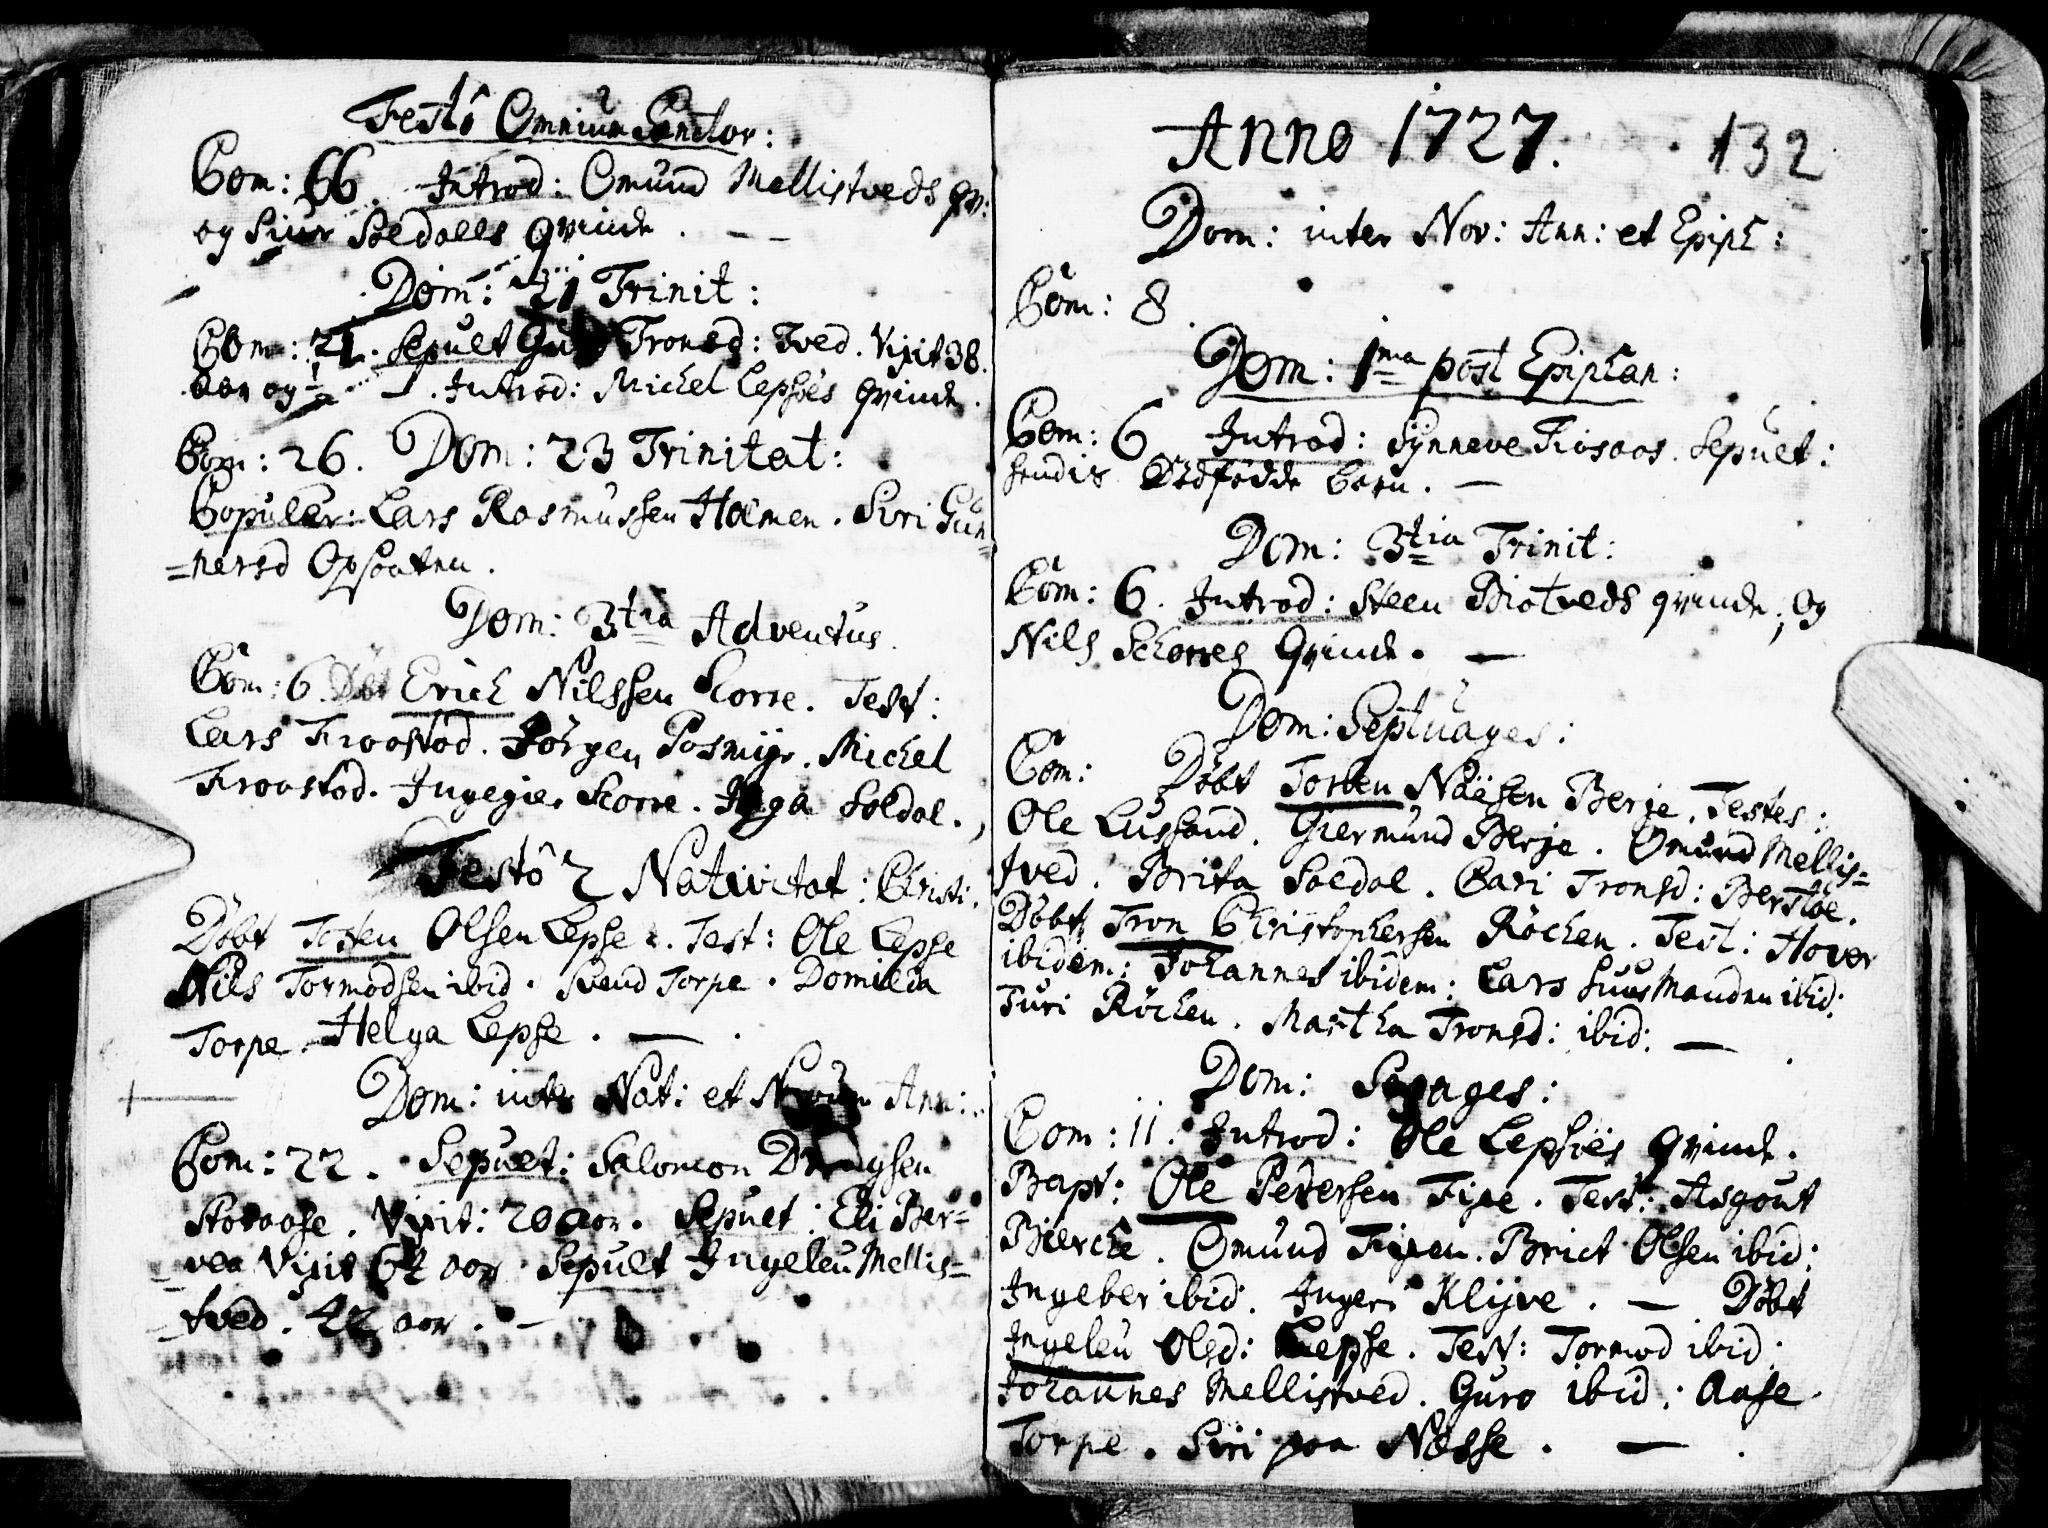 Festô Omnium Sanctor:
Com: 66. Introd: Omund Mellistveds qv:
og Siur Soldalls Qvinde.
Dom: 21 Trinit:
Com: 21. Sepult Tronsd: Tved. Vixit 38.
aar og ½ . Introd: Michel Lepsøes qvinde.
Com: 26. Dom: 23 Trinitat:
Copuler: Lars Rasmussen Holmen. Siri Gun=
=nersd Opsaaten.
Dom: 3tia Adventus.
Com: 6. Døbt Erich Nilssen Skorre. Test:
Lars Fraastød. Jørgen Posmijr. Michel
Fraastød. Ingegier Skorre. Inga Soldal.
Festô 2 Nativitat: Christi.
Døbt Tosten Olsen Lepsøe. Test: Ole Lepsøe
Nils Tormodsen ibid. Svend Torpe. Domilda
Torpe. Helga Lepsøe.
Dom: inter Nat: et Novum Ann:
Com: 22. Sepult: Salomon
Storaase. Vixit: 20 aar. Sepult: Eli Ber=
=ven Vixit 64 aar. Sepult Ingeleu Mellis=
=tved. 42 aar.
Anno 1727. 132
Dom: inter Nov: Ann: et Epiph:
Com: 8.
Dom: 1ma post Epiphan:
Com: 6 Introd: Synneve Fiosaas. Sepult:
hendis Dødfødde Barn.
Dom: 3tia Trinit:
Com: 6. Introd: Steen Biotveds qvinde, og
Nils Schorres Qvinde.
Dom: Septuages:
Com: Døbt Torben Nilsen Berje. Testes:
Ole Lussand. Giermund Berje. Omund Mellis=
tved. Brita Soldal. Cari Tronsd: Berstøe.
Døbt Tron Christophersen Røchen. Test: Hover
ibidem: Johannes ibidem: Lars Huusmanden ibid:
Turi Røchen. Martha Tronsd: ibid:
Dom: Sexages:
Com: 11. Introd: Ole Lepsøes Qvinde.
Bapt: Ole Pedersen Fixe. Test: Asgout
Bierche. Omund Fixen. Brict Olsen ibid:
Ingeber ibid. Inger Klyve. Døbt
Ingeleu Olsd: Lepsøe. Test: Tormod ibid:
Johannes Mellistved. Guro ibid: Aase
Torpe. Siri paa Næsse.